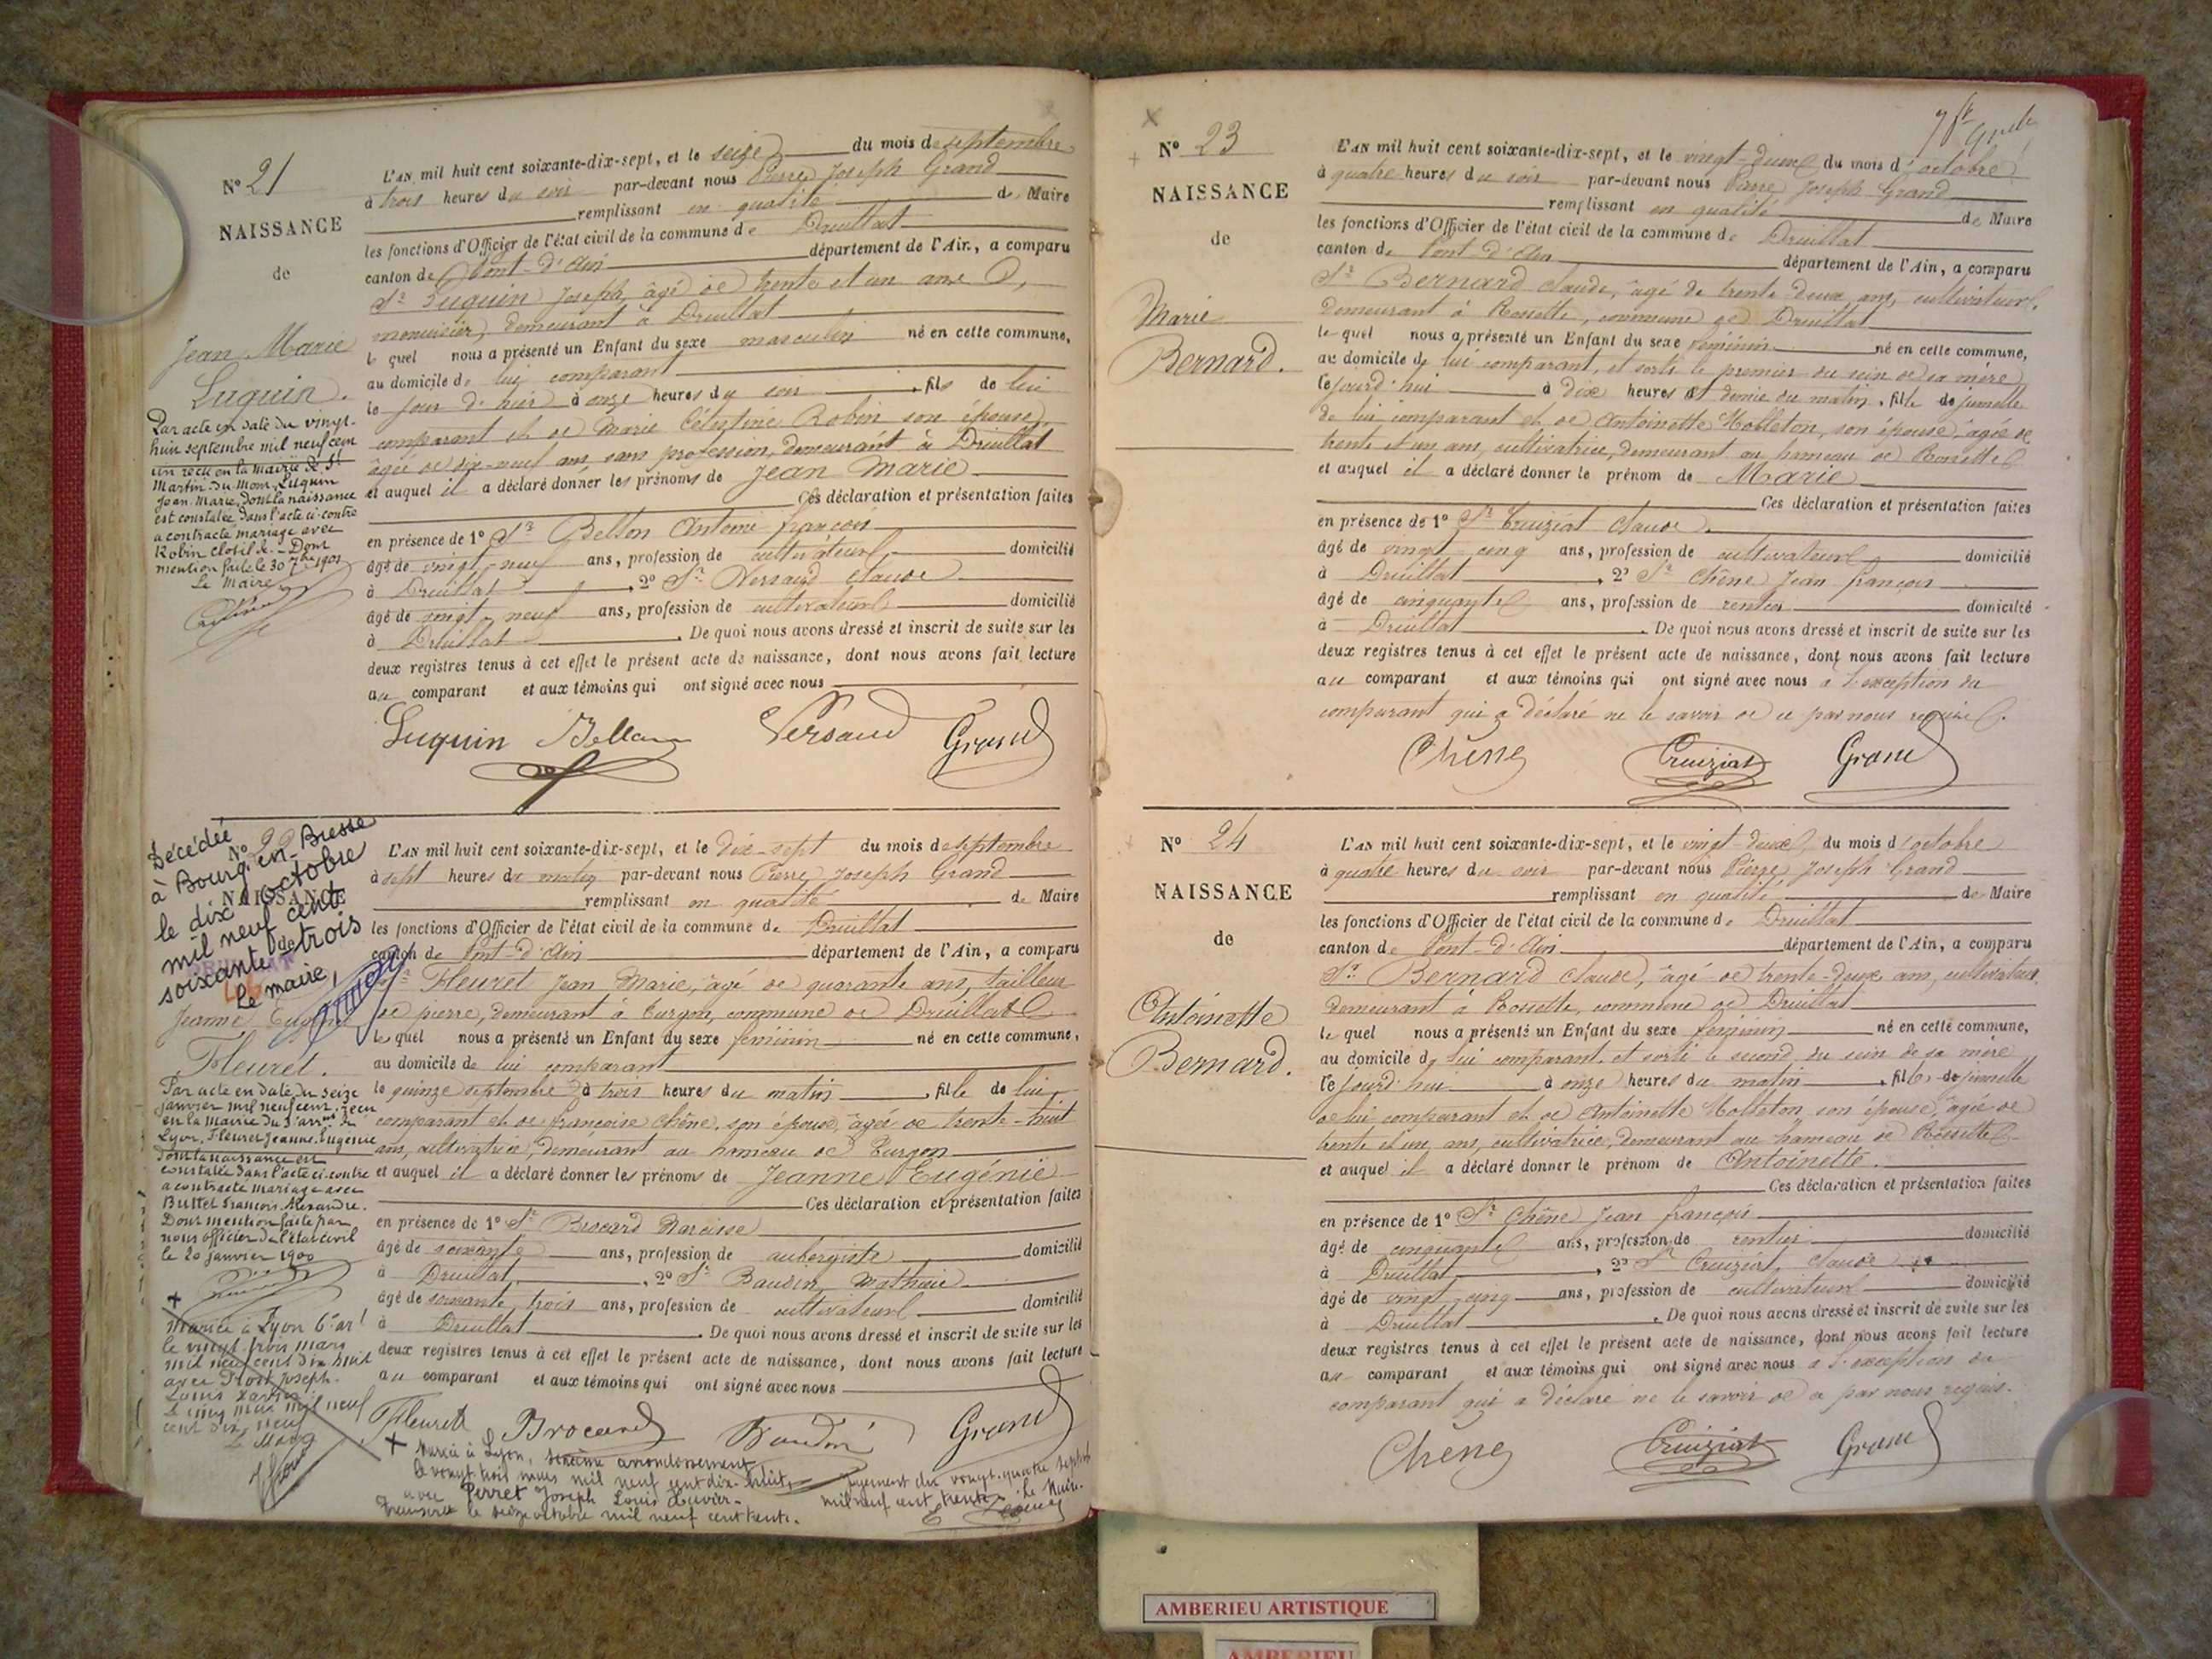 Nº 21
NAISSANCE
de
Jean Marie
Luquin.
Par acte en date du vingt-
huit septembre mil neuf cent
un reçu en la mairie de St
Martin-du-Mont, Luquin
Jean-Marie, dont la naissance
est constatée dans l'acte ci-contre
a contracté mariage avec
Robin Clotilde. - Dont
mention faite le 30 7bre 1901
Le Maire
L'AN mil huit cent soixante-dix-sept, et le seize du mois de septembre
à trois heures du soir par-devant nous Pierre Joseph Grand
remplissant en qualité de Maire
les fonctions d'Officier de l'état civil de la commune de Druillat
canton de Pont-d'Ain département de l'Ain, a comparu
Sr Luquin Joseph, âgé de trente et un ans,
menuisier, demeurant à Druillat
lequel nous a présenté un Enfant du sexe masculin né en cette commune,
au domicile de lui comparant
le jour d'hier à onze heures du soir, fils de lui
comparant et de Marie Célestine Robin son épouse,
âgée de dix-neuf ans, sans profession, demeurant à Druillat
et auquel il a déclaré donner les prénoms de Jean Marie
Ces déclaration et présentation faites
en présence de 1º Sr Bellon Antoine françois
âgé de vingt-neuf ans, profession de cultivateur, domicilié
à Druillat, 2º Sr Versaud Claude
âgé de vingt-neuf ans, profession de cultivateur domicilié
à Druillat. De quoi nous avons dressé et inscrit de suite sur les
deux registres tenus à cet effet le présent acte de naissance, dont nous avons fait lecture
au comparant et aux témoins qui ont signé avec nous
Luquin Bellon Versaud Grand
Décédée
à Bourg-en-Bresse
le dix octobre
mil neuf cent
soixante trois
Le maire,
Nº 22
NAISSANCE
de
DRUILLAT
Jeanne Eugénie
Fleuret.
Par acte en date du seize
janvier mil neuf cent, reçu
en la mairie du 3e arrnt de
Lyon, Fleuret Jeanne Eugénie
dont la naissance est
constatée dans l'acte ci-contre
a contracté mariage avec
Buttet François Alexandre.
Dont mention faite par
nous officier de l'état civil
le 20 janvier 1900
Mariée à Lyon 6e arrt
le vingt-trois mars
mil neuf cent dix huit
avec Joseph
Louis Xavier
Le cinq mars mil neuf
cent dix neuf
Le Maire
L'AN mil huit cent soixante-dix-sept, et le dix-sept du mois de septembre
à sept heures du matin par-devant nous Pierre Joseph Grand
remplissant en qualité de Maire
les fonctions d'Officier de l'état civil de la commune de Druillat
canton de Pont-d'Ain département de l'Ain, a comparu
Sr Fleuret Jean Marie, âgé de quarante ans, tailleur
de pierre, demeurant à Turgon, commune de Druillat
lequel nous a présenté un Enfant du sexe féminin né en cette commune,
au domicile de lui comparant
le quinze septembre à trois heures du matin, fille de lui
comparant et de françoise Chêne, son épouse, âgée de trente-huit
ans, cultivatrice, demeurant au hameau de Turgon
et auquel il a déclaré donner les prénoms de Jeanne Eugénie
Ces déclaration et présentation faites
en présence de 1º Sr Brocard Narcisse
âgé de soixante ans, profession de aubergiste domicilié
à Druillat, 2º Sr Baudin, Mathieu
âgé de soixante trois ans, profession de cultivateur domicilié
à Druillat. De quoi nous avons dressé et inscrit de suite sur les
deux registres tenus à cet effet le présent acte de naissance, dont nous avons fait lecture
au comparant et aux témoins qui ont signé avec nous
Fleuret Brocard Baudin Grand
Marié à Lyon, sixième arrondissement
le vingt trois mars mil neuf cent dix-huit,
avec Perret Joseph Louis Xavier.
jugement du vingt-quatre septembre
mil neuf cent trente. Le Maire.
Transcrit le seize octobre mil neuf cent trente.
Nº 23
NAISSANCE
de
Marie
Bernard.
L'AN mil huit cent soixante-dix-sept, et le vingt-deux du mois d'octobre
à quatre heures du soir par-devant nous Pierre Joseph Grand
remplissant en qualité de Maire
les fonctions d'Officier de l'état civil de la commune de Druillat
canton de Pont-d'Ain département de l'Ain, a comparu
Sr Bernard Claude, âgé de trente deux ans, cultivateur,
demeurant à Rossette, commune de Druillat
lequel nous a présenté un Enfant du sexe féminin né en cette commune,
au domicile de lui comparant, et sorti le premier du sein de sa mère
ce jourd'hui à dix heures et demie du matin, fille de jumelle
de lui comparant et de Antoinette Molleton, son épouse, âgée de
trente et un ans, cultivatrice, demeurant au hameau de Rossette
et auquel il a déclaré donner le prénom de Marie
Ces déclaration et présentation faites
en présence de 1º Sr Cruiziat Claude
âgé de vingt cinq ans, profession de cultivateur domicilié
à Druillat, 2º Sr Chêne Jean françois
âgé de cinquante ans, profession de rentier domicilié
à Druillat. De quoi nous avons dressé et inscrit de suite sur les
deux registres tenus à cet effet le présent acte de naissance, dont nous avons fait lecture
au comparant et aux témoins qui ont signé avec nous à l'exception du
comparant qui a déclaré ne le savoir de ce par nous requis.
Chêne Cruiziat Grand
Nº 24
NAISSANCE
de
Antoinette
Bernard.
L'AN mil huit cent soixante-dix-sept, et le vingt-deux du mois d'octobre
à quatre heures du soir par-devant nous Pierre Joseph Grand
remplissant en qualité de Maire
les fonctions d'Officier de l'état civil de la commune de Druillat
canton de Pont-d'Ain département de l'Ain, a comparu
Sr Bernard Claude, âgé de trente-deux ans, cultivateur,
demeurant à Rossette, commune de Druillat
lequel nous a présenté un Enfant du sexe féminin né en cette commune,
au domicile de lui comparant, et sorti le second du sein de sa mère
ce jourd'hui à onze heures du matin, fille de jumelle
de lui comparant et de Antoinette Molleton son épouse, âgée de
trente et un ans, cultivatrice, demeurant au hameau de Rossette
et auquel il a déclaré donner le prénom de Antoinette.
Ces déclaration et présentation faites
en présence de 1º Sr Chêne Jean françois
âgé de cinquante ans, profession de rentier domicilié
à Druillat, 2º Sr Cruiziat, Claude
âgé de vingt cinq ans, profession de cultivateur domicilié
à Druillat. De quoi nous avons dressé et inscrit de suite sur les
deux registres tenus à cet effet le présent acte de naissance, dont nous avons fait lecture
au comparant et aux témoins qui ont signé avec nous à l'exception du
comparant qui a déclaré ne le savoir de ce par nous requis.
Chêne Cruiziat Grand
AMBERIEU ARTISTIQUE
AMBERIEU